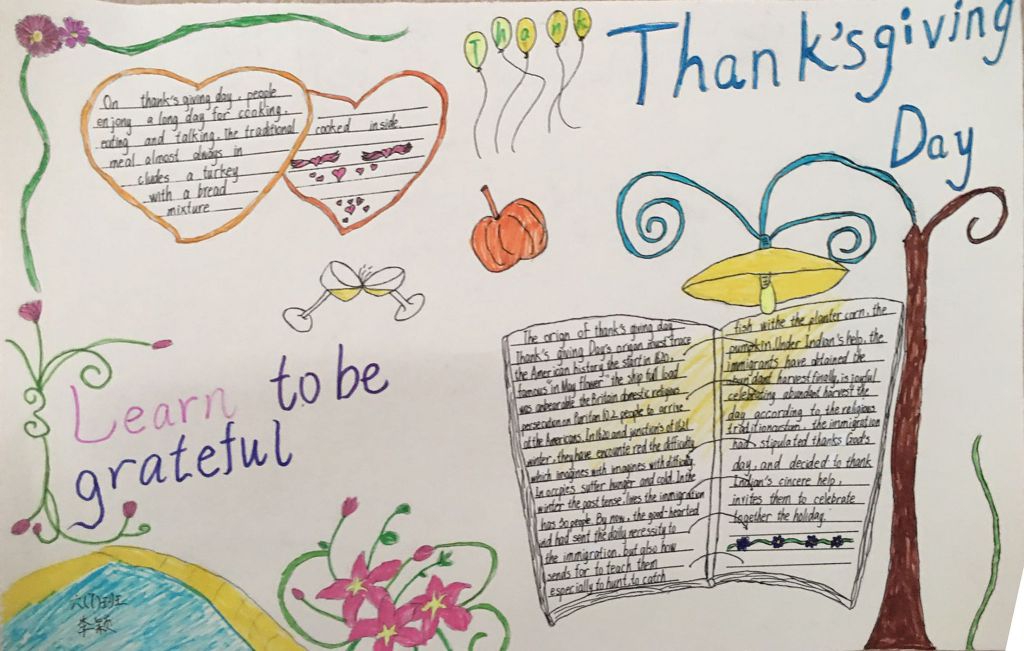 Thank
Thank'sgiving
Day
On thank's giving day, people
enjony a long day for cooking,
eating and talking. The traditional
meal almost always in
cludes a turkey
with a bread
mixture
cooked inside.
Learn to be
grateful
The orign of thank's giving day
Thank's giving Day's origan must trace
the American history the start in 1620,
famous "in May flower" the ship full load
was unbearable the Britain domestic religious
persecution on Puritan 102 people to arrive
at the Americans. In 1620 and junction's of 1621
winter, they have encounte red the difficulty
which imagines with imagines with difficulty,
In occpies suffer hunger and cold. In the
winter the past tense lives the immigration
has 50 people. By now, the good-hearted
had sent the daily necessity to
the immigration, but also how
sends for to teach them
especially to hunt, to catch
fish withe the planter corn, the
pumpkin. Under Indian's help, the
immigrants have obtained the
abundant harvest finally, is joyful
celebrating abundant harvest the
day according to the religious
traditioncustom, the immigration
had stipulated thanks God's
day, and decided to thank
Indian's sincere help,
invites them to celebrate
together the holiday.
班
李颖